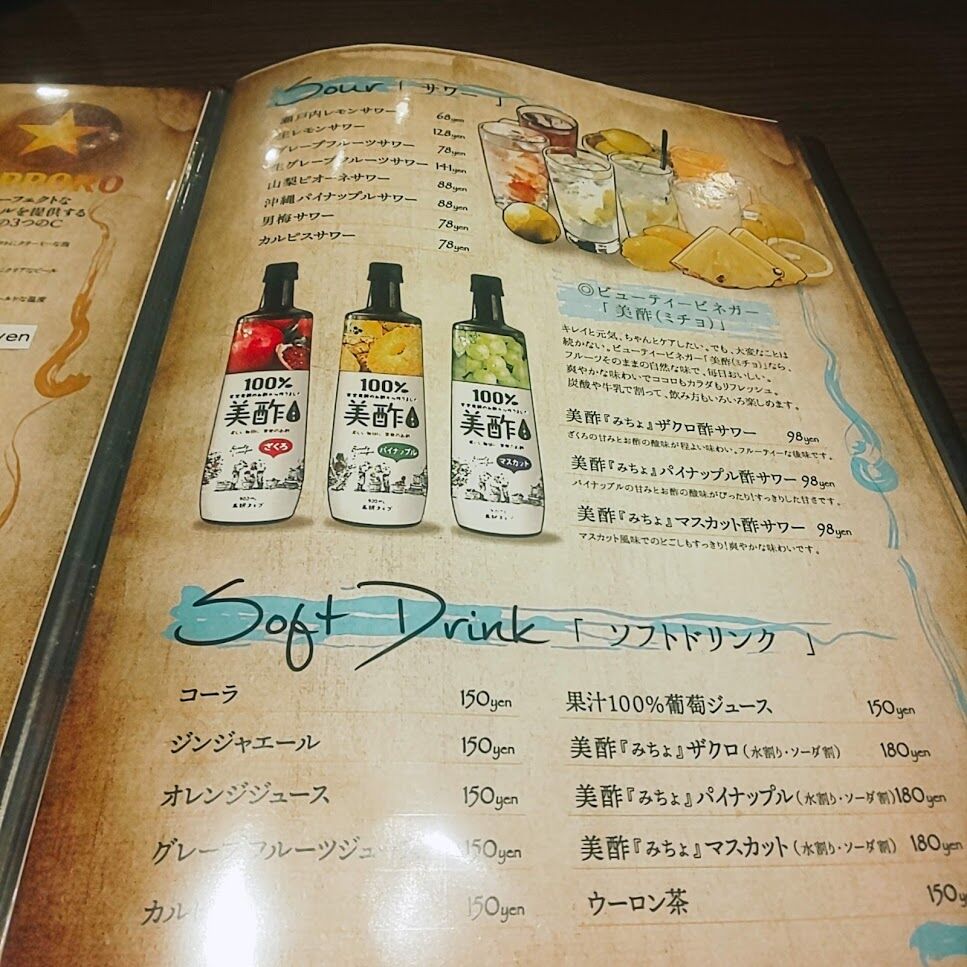 ーフェクトな
ルを提供する
の3つのC
ールドな温度
yen
Sour「 サワー 」
瀬戸内レモンサワー 68yen
生レモンサワー 128yen
グレープフルーツサワー 78yen
生グレープフルーツサワー 141yen
山梨ピオーネサワー 88yen
沖縄パイナップルサワー 88yen
男梅サワー 78yen
カルピスサワー 78yen
100%
美酢
ざくろ
100%
美酢
パイナップル
100%
美酢
マスカット
◎ビューティービネガー
「美酢(ミチョ)」
キレイと元気、ちゃんとケアしたい。でも、大変なことは
続かない。ビューティービネガー「美酢(ミチョ)」なら、
フルーツそのままの自然な味で、毎日おいしい。
爽やかな味わいでココロもカラダもリフレッシュ。
炭酸や牛乳で割って、飲み方もいろいろ楽しめます。
美酢『みちょ』ザクロ酢サワー 98yen
ざくろの甘みとお酢の酸味が程よい味わい。フルーティーな後味です。
美酢『みちょ』パイナップル酢サワー 98yen
パイナップルの甘みとお酢の酸味がぴったり!すっきりした甘さです。
美酢『みちょ』マスカット酢サワー 98yen
マスカット風味でのどごしもすっきり!爽やかな味わいです。
Soft Drink「 ソフトドリンク 」
コーラ 150yen
ジンジャエール 150yen
オレンジジュース 150yen
グレープフルーツジュ 150yen
カルピ 150yen
果汁100%葡萄ジュース 150yen
美酢『みちょ』ザクロ(水割り・ソーダ割) 180yen
美酢『みちょ』パイナップル(水割り・ソーダ割) 180yen
美酢『みちょ』マスカット(水割り・ソーダ割) 180yen
ウーロン茶 150y